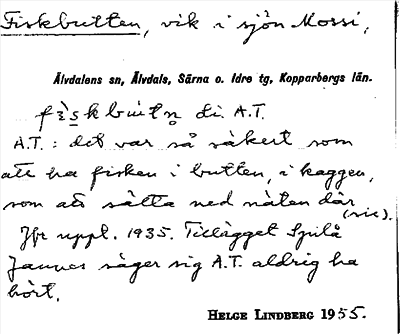 Fiskbutten, vik i sjön Mossi,
Älvdalens sn, Älvdals, Särna o. Idre tg, Kopparbergs län.
di. A.T.
A.T.: det var så säkert som
att ha fisken i butten, i kaggen,
som att sätta ned näten där
(sic).
Jfr uppt. 1935. Tillägget Spilå
Jannes säger sig A.T. aldrig ha
hört.
HELGE LINDBERG 1955.